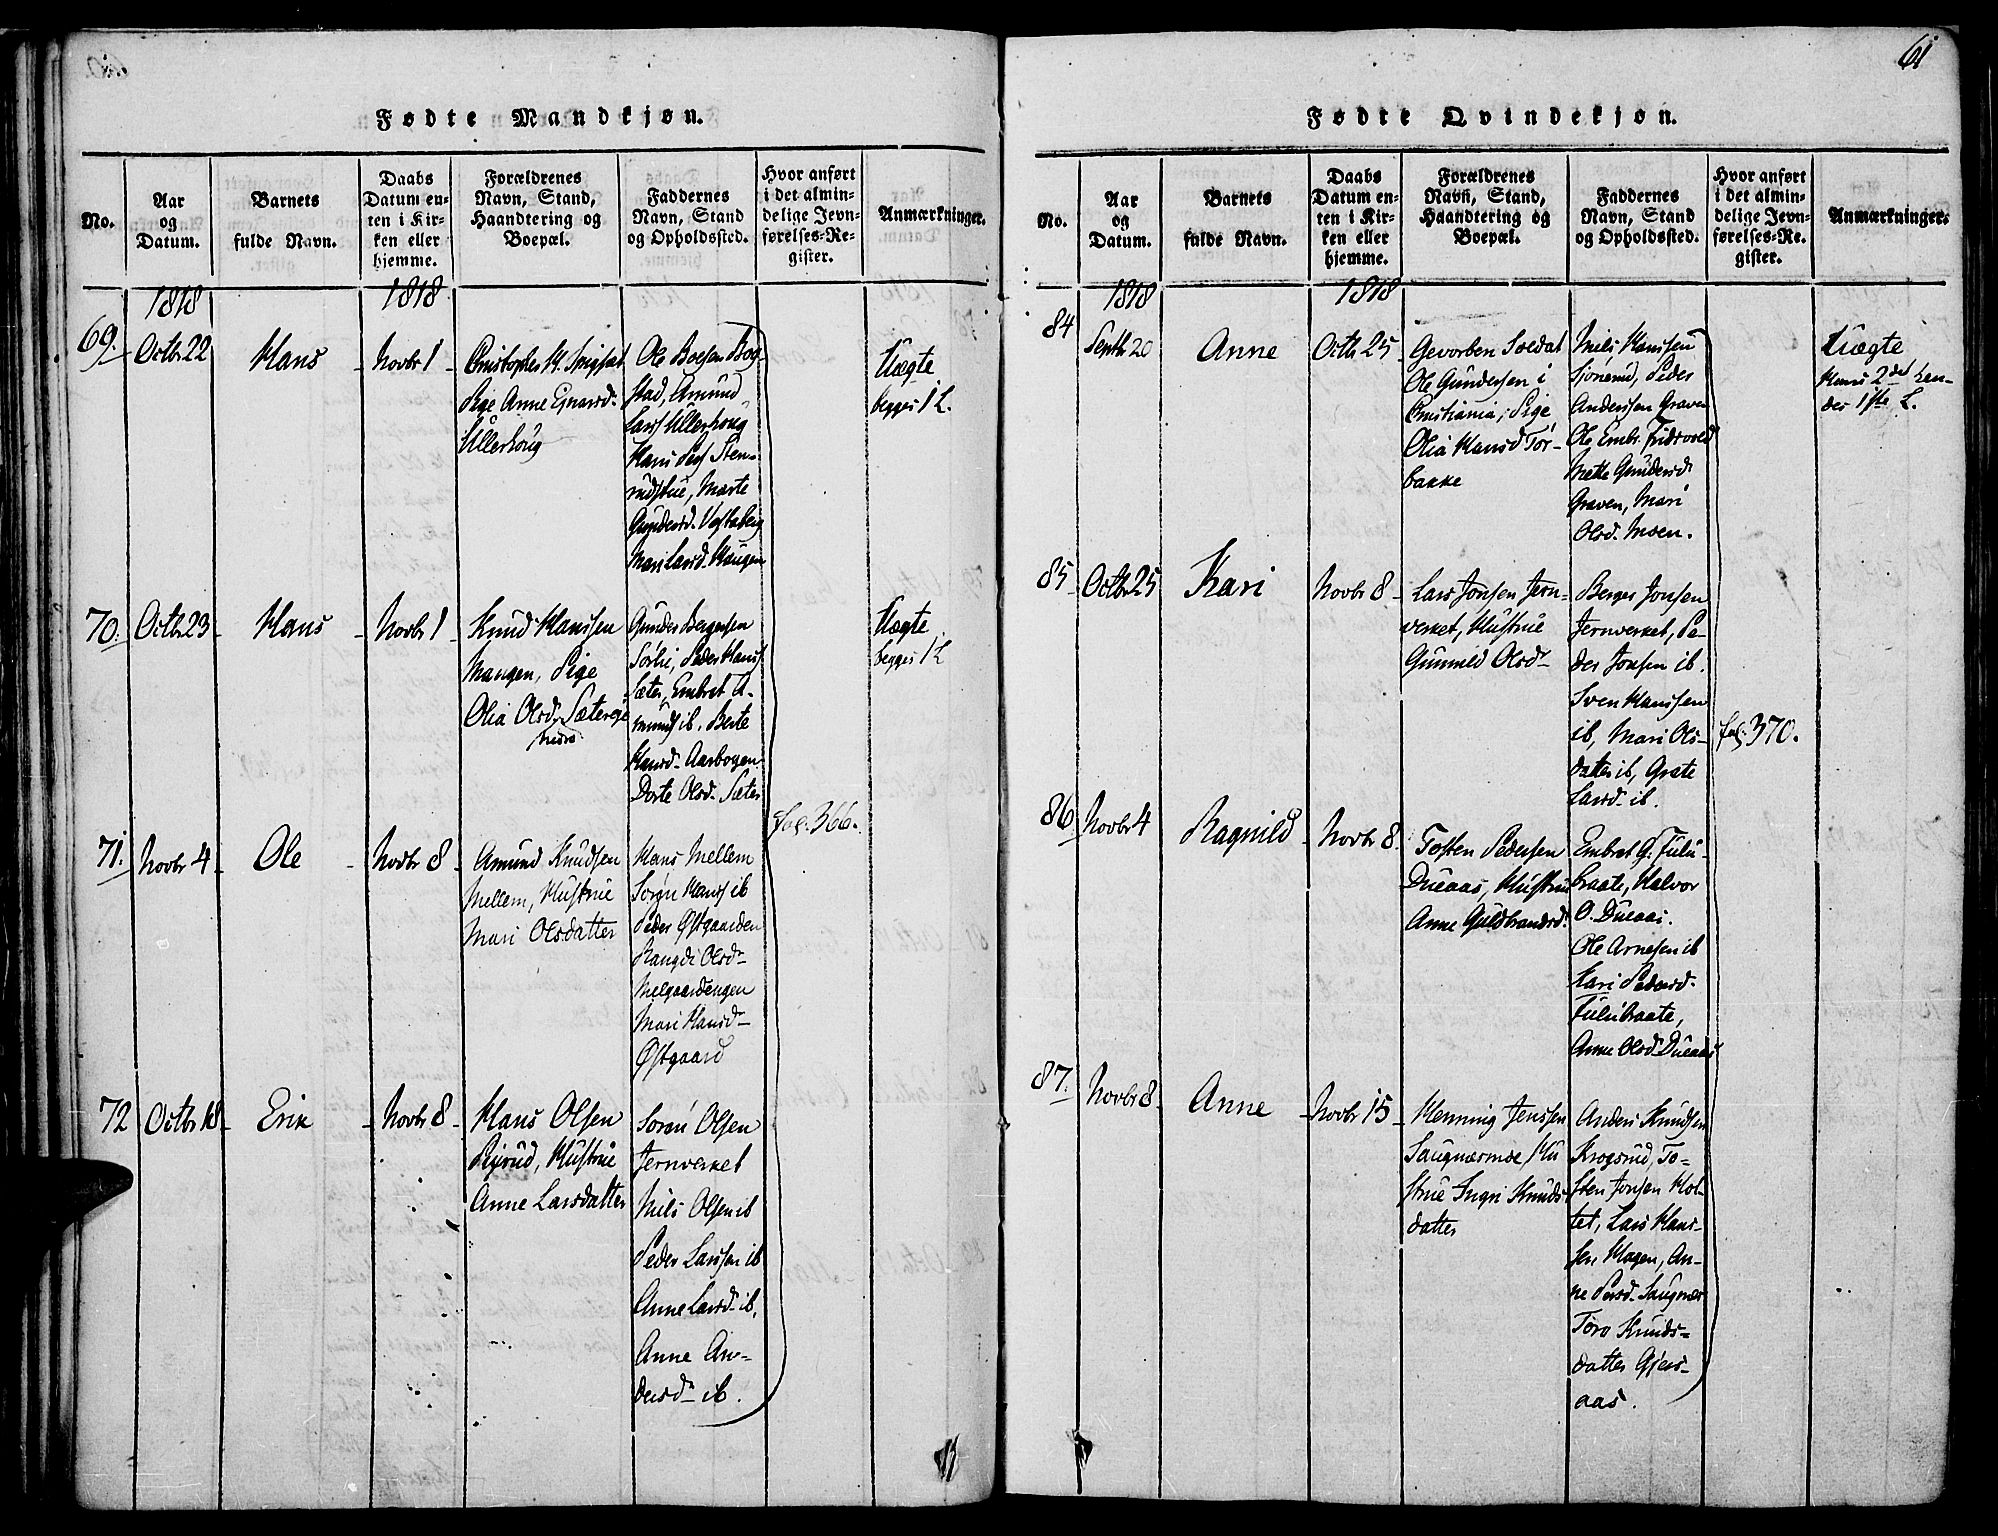 61
Fødte Mandkjøn.
No.
Aar
og
Datum.
Barnets
fulde Navn.
Daabs
Datum en-
ten i Kir-
ken eller
hjemme.
Forældrenes
Navn, Stand,
Haandtering og
Boepæl.
Faddernes
Navn, Stand
og Opholdssted.
Hvor anført
i det almin-
delige Jevn-
førelses-Re-
gister.
Anmærkninger.
1818
1818
69.
Octbr 22
Hans
Novbr 1
Christopher H.
Pige Anne Ejnarsd.
Ullerhoug
Ole Boesen Bog-
stad, Amund
Larss Ullerhoug
Hans Pess Sten-
rudstue, Marte
Gundersd. Vestaberg
Mari Larsd. Haugen
Uægte
begges 1 L.
70.
Octbr 23
Hans
Novbr 1
Knud Hanssen
Mangen, Pige
Olia Olsd. Sætereje
nedre
Gunder Bergersen
Sørlie, Peder Hanss
Sæter, Embret A-
munds ib, Berte
Hansd. Aarbogen
Dorte Olsd. Sæter
Uægte
begges 1 L
fol. 366.
71.
Novbr 4
Ole
Novbr 8
Amund Knudsen
Mellem, Hustrue
Mari Olsdatter
Hans Mellem
Sørgn Hanss ib
Peder Østgaarden
Rangdi Olsdr
Melgaardengen
Mari Hansd
Østgaard
72
Octbr 18
Erik
Novbr 8
Hans Olsen
Hustrue
Anne Larsdatter
Søren Olsen
Jernverket
Nils Olsen ib
Peder Larssen ib
Anne Larsd. ib,
Anne An-
dersdr ib.
Fødte Qvindekjøn.
No.
Aar
og
Datum.
Barnets
fulde Navn.
Daabs
Datum en-
ten i Kir-
ken eller
hjemme.
Forældrenes
Navn, Stand,
Haandtering og
Boepæl.
Faddernes
Navn, Stand
og Opholdssted.
Hvor anført
i det almin-
delige Jevn-
førelses-Re-
gister.
Anmærkninger.
1818
1818
84
Septbr 20
Anne
Octbr 25
Gevorben Soldat
Ole Gundersen i
Christiania, Pige
Olia Hansd Tør-
bakke
Nils Hanssen
Sjønerud, Peder
Anderssen Graven
Ole Embr. Fridsvold
Mette Gundersd
Graven, Mari
Olsd. Moen.
Uægte
Hans 2det hen-
des 1ste L.
85
Octbr 25
Kari
Novbr 8
Lars Jonsen Jern-
verket, Hustrue
Gunnild Olsd
Berger Jonsen
Jernverket, Pe-
der Jonsen ib.
Sven Hanssen
ib, Mari Ols-
datter ib, Grete
Larsd. ib.
fol. 370.
86
Novbr 4
Ragnild
Novbr 8
Tosten Pedersen
Dueaas, Hustrue
Anne Guldbrandsd.
Embret G. Fulu-
braate, Halvor
O. Dueaas.
Ole Arnesen ib
Kari Pedersd.
Fulubraate,
Anne Olsd Dueaas
87.
Novbr 8
Anne
Novbr 15
Henning Jenssen
Saugnærmoe, Hu
strue Ingri Knuds
datter
Anders Knudsen
Krogsrud, To-
sten Jonsen Hol-
tet, Lars Hans-
sen Hagen, An-
ne Persd. Saugnær
Toro Knuds-
datter Gjers-
aas.